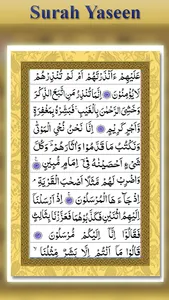 Surah Yaseen
عَلَيْهِمْ ءَاَنْذَرْتَهُمْ اَمْ لَمْ تُنْذِرْهُمْ
لَا يُؤْمِنُوْنَ ۝ اِنَّمَا تُنْذِرُ مَنِ اتَّبَعَ الذِّكْرَ
وَخَشِيَ الرَّحْمٰنَ بِالْغَيْبِ ۚ فَبَشِّرْهُ بِمَغْفِرَةٍ
وَّاَجْرٍ كَرِيْمٍ ۝ اِنَّا نَحْنُ نُحْيِ الْمَوْتٰى
وَنَكْتُبُ مَا قَدَّمُوْا وَاٰثَارَهُمْ ؕ وَكُلَّ
شَيْءٍ اَحْصَيْنٰهُ فِيْۤ اِمَامٍ مُّبِيْنٍ ۝
وَاضْرِبْ لَهُمْ مَّثَلًا اَصْحٰبَ الْقَرْيَةِ ۘ
اِذْ جَآءَهَا الْمُرْسَلُوْنَ ۝ اِذْ اَرْسَلْنَاۤ
اِلَيْهِمُ اثْنَيْنِ فَكَذَّبُوْهُمَا فَعَزَّزْنَا بِثَالِثٍ
فَقَالُوْۤا اِنَّاۤ اِلَيْكُمْ مُّرْسَلُوْنَ ۝
قَالُوْا مَاۤ اَنْتُمْ اِلَّا بَشَرٌ مِّثْلُنَا